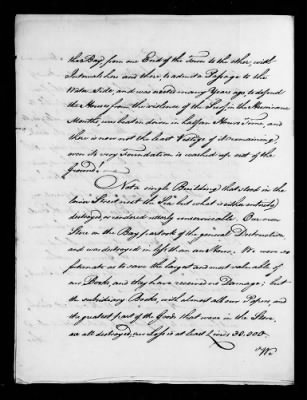 the Bay, from one End of the Town to the other, with
Intervals here and there, to admit a Passage to the
Water Side, and was erected many Years ago, to defend
the Houses from the violence of the Surf, in the Hurricane
Months, was beat in down in half an Hours Time, and
there is now not the least Vestige of it remaining,
even its very Foundation is washed up out of the
Ground!
Not a single Building that stood in the
Street next the Sea but what is either entirely
destroyed or rendered nearly unserviceable. Our own
Store on the Bay partook of the general Destruction
and was destroyed in less than an Hour. We were so
fortunate as to save the largest and most valuable of
our Books, and they have received no Damage; but
the subsidiary Books, with almost all our Papers, and
the greatest part of the Goods that were in the Store,
are all destroyed, our Loss is at least 30.000.
"We